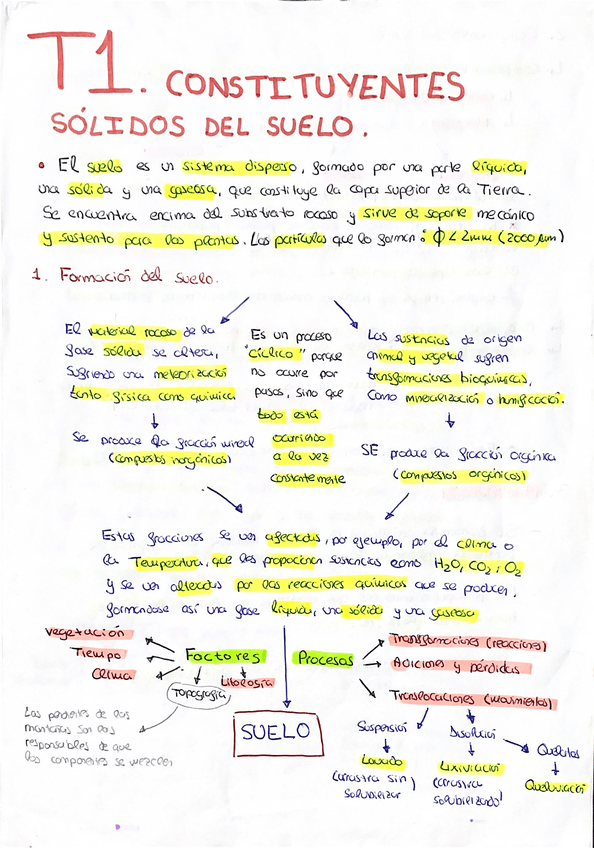 T1. CONSTITUYENTES
SÓLIDOS DEL SUELO.
• El suelo es un sistema disperso, formado por una parte líquida,
una sólida y una gaseosa, que constituye la capa superior de la Tierra.
Se encuentra encima del substrato rocoso y sirve de soporte mecánico
y sustento para las plantas. Las partículas que lo forman: ϕ < 2mm (2000 μm)
1. Formación del suelo.
El material rocoso de la
fase sólida se altera,
sufriendo una meteorización
tanto física como química
Se produce la fracción mineral
(compuestos inorgánicos)
Es un proceso
"cíclico" porque
no ocurre por
pasos, sino que
todo está
ocurriendo
a la vez
constantemente
Las sustancias de origen
animal y vegetal sufren
transformaciones bioquímicas,
como mineralización o humificación.
SE produce la fracción orgánica
(compuestos orgánicos)
Estas fracciones se ven afectadas, por ejemplo, por el clima o
la Temperatura, que les proporcionan sustancias como H2O, CO2, O2
y se ven alteradas por las reacciones químicas que se producen,
formándose así una fase líquida, una sólida y una gaseosa
Factores
vegetación
Tiempo
Clima
Topografía
Litología
Las pendientes de las
montañas son las
responsables de que
los componentes se mezclen
SUELO
Procesos
Transformaciones (reacciones)
Adiciones y pérdidas
Translocaciones (movimientos)
Suspensión
Lavado
(arrastra sin)
solubilizar
Disolución
Lixiviación
(arrastra
solubilizando)
Quelatos
Queluviación